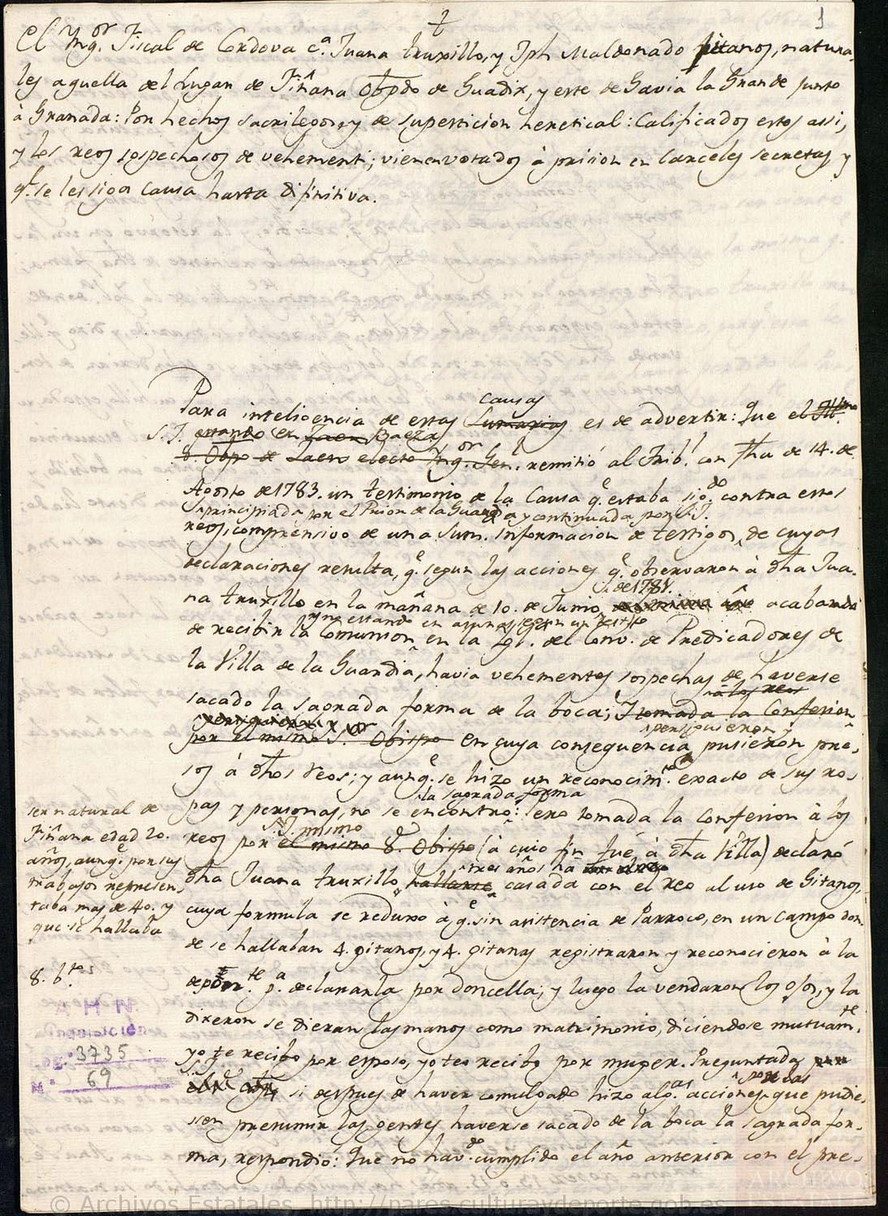 1
El Ynq.or Fiscal de Cordova c.a Juana truxillo, y Jph Maldonado Gitanos, natura-
les aquella del Lugar de Fiñana Obpdo de Guadix, y este de Gavia la Grande junto
à Granada: Por hechos sacrilegos, y de supersticion heretical: Calificados estos assi,
y los reos sospechosos de vehementi; vienen votados à prision en Carceles Secretas, y
q.e se les siga causa hasta difinitiva.
Para inteligencia de estas causas es de advertir: Que el
S.I. estando en Baeza
Obpo de Jaen electo Ynq.or Gen.l remitió al Trib.l con fha de 14. de
Agosto de 1783. un testimonio de la Causa q.e estaba sig.do contra estos
principiada por el Prior de la Guardia y continuada por S.I.
reos, comprensivo de una Sum. informacion de testigos, de cuyas
declaraciones resulta, q.e segun las acciones q.e observaron à dha Jua-
na truxillo en la mañana de 10. de Junio de 1781. acabando
de recibir la Comunion en la Ygl. del Conv. de Predicadores de
la Villa de la Guardia, havia vehementes sospechas de haverse
sacado la sagrada forma de la boca; tomada la Confesion
por el mismo S.or Obispo en cuya conseguencia pusieron pre-
sos à dhos reos: y aunq.e se hizo un reconocim.to exacto de sus ro-
pas y personas, no se encontró la sagrada forma: tomada la Confesion à los
reos por S.I. mismo el mismo S.or Obispo (à cuio fin fué à dha Villa) declaró
dha Juana truxillo, hallarse tres años ha casada con el reo al uso de Gitanos,
cuya formula se reduxo à q.e sin asistencia de Parroco, en un Campo don-
de se hallaban 4. gitanos, y 4. gitanas registraron y reconocieron à la
depon.te p.a declararla por doncella; y luego la vendaron los ojos, y la
dixeron se dieran las manos como matrimonio, diciendose mutuam.te
yo te recibo por esposo, yo te recibo por muger. Preguntada
si despues de haver comulgado hizo alg.as acciones, por las que pudie-
ssen presumir las gentes haverse sacado de la boca la sagrada for-
ma, respondio: Que no hav.do cumplido el año anterior con el pre-
ser natural de
Fiñana edad 20.
años, aunq.e por sus
trabajos represen-
taba mas de 40. y
que se hallaba
8. b.tes
A H N
Inquisición
Leg.º 3735
N.º 69
© Archivos Estatales, http://pares.culturaydeporte.gob.es